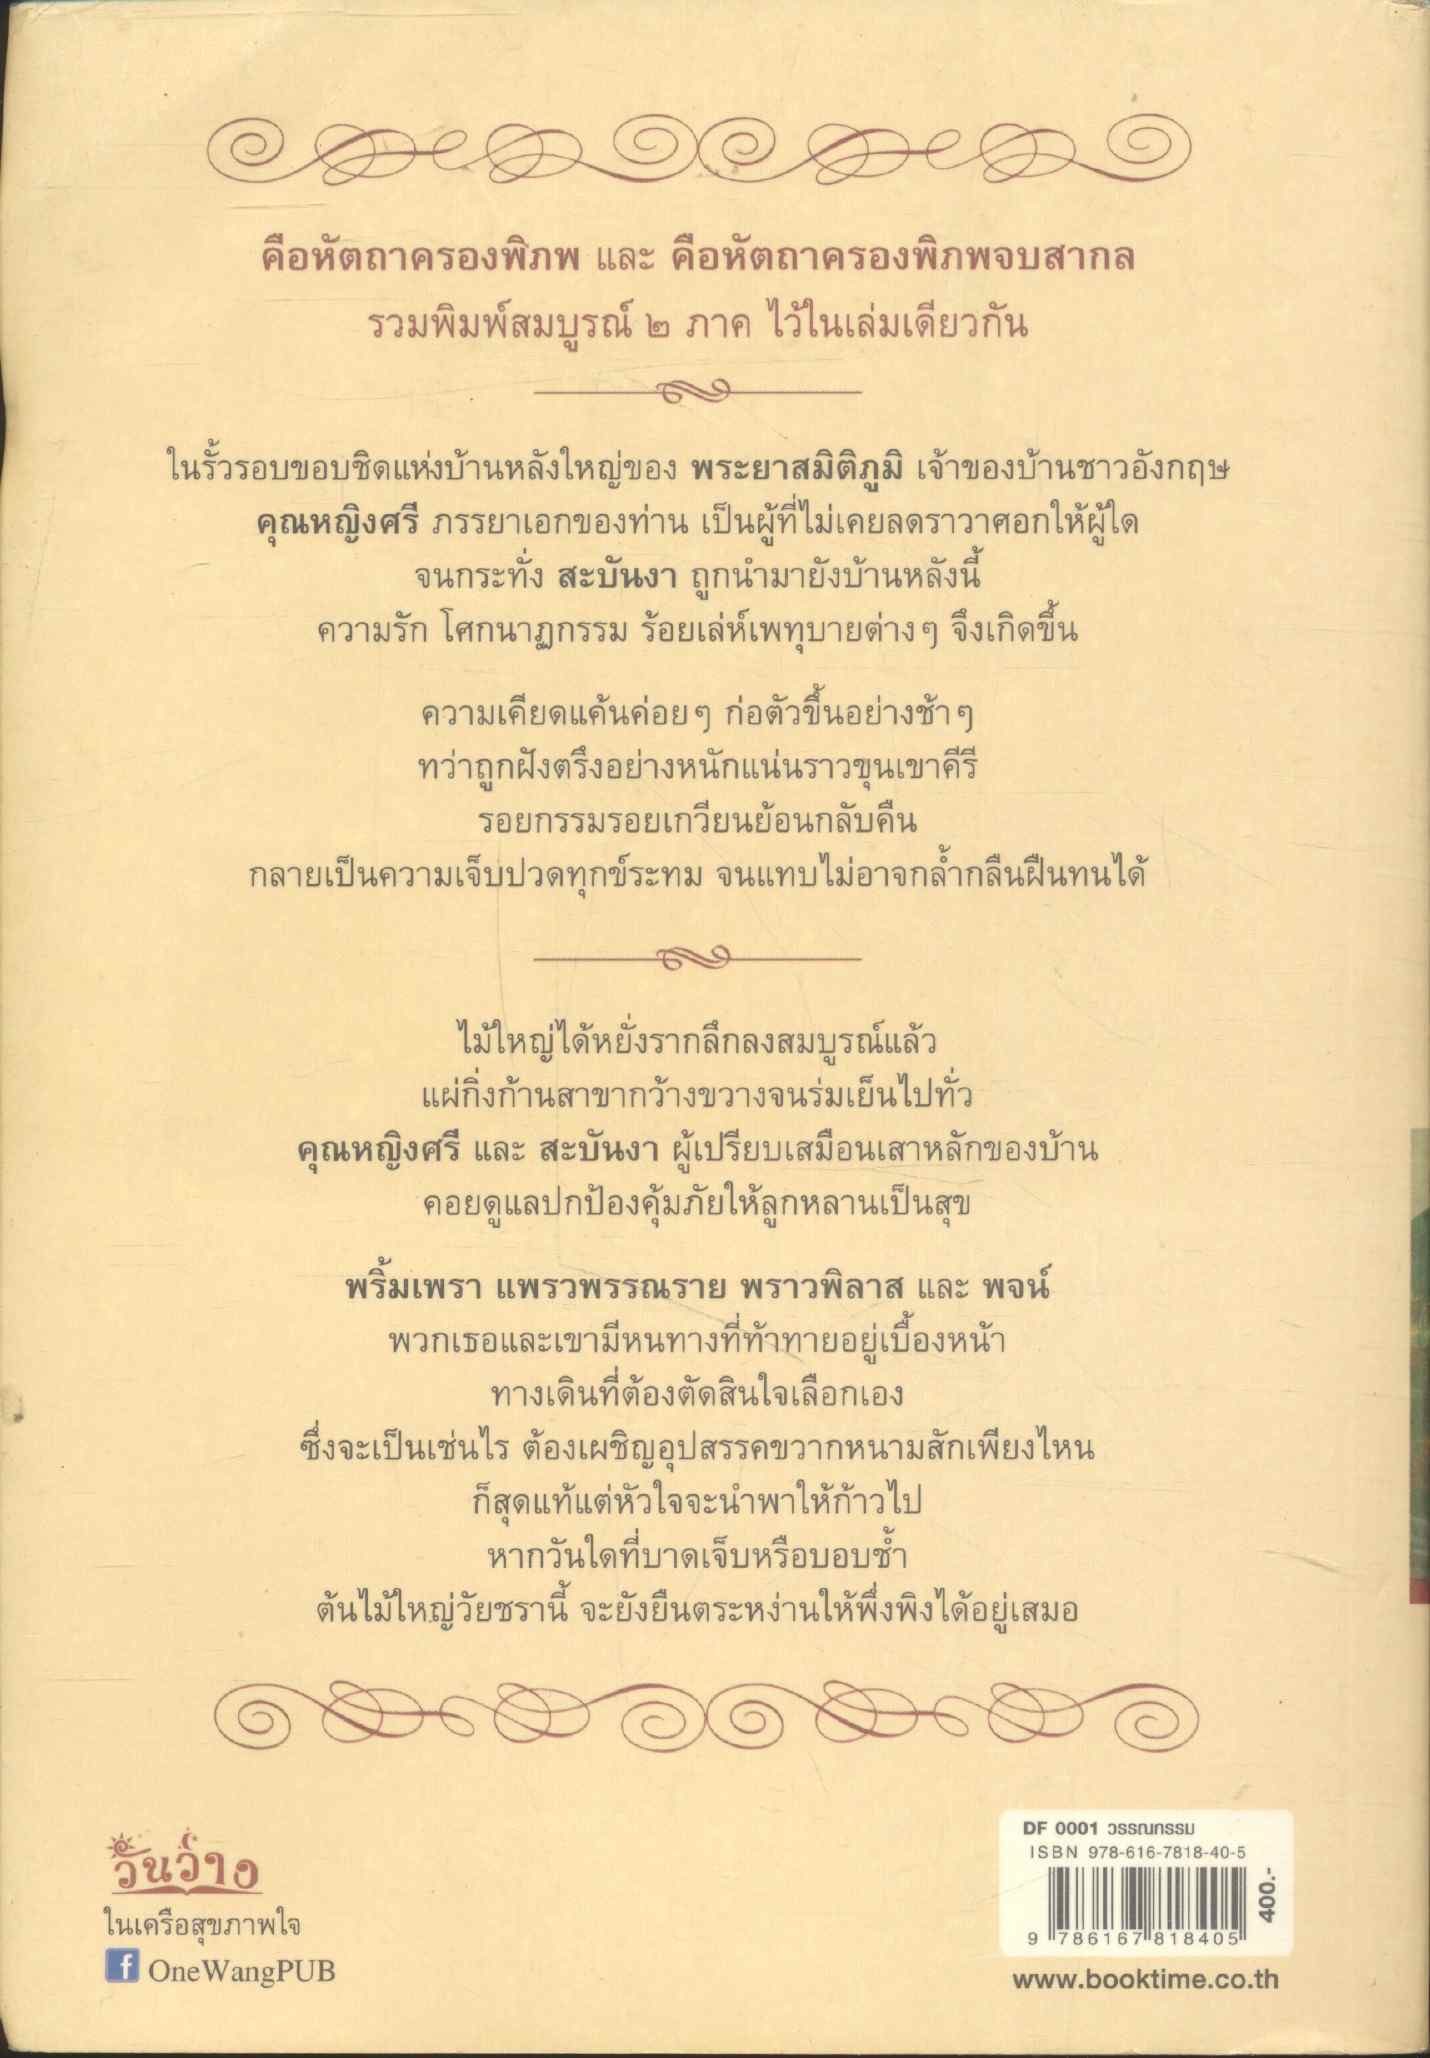 คือหัตถาครองพิภพ และ คือหัตถาครองพิภพจบสากล
รวมพิมพ์สมบูรณ์ ๒ ภาค ไว้ในเล่มเดียวกัน
ในรั้วรอบขอบชิดแห่งบ้านหลังใหญ่ของ พระยาสมิติภูมิ เจ้าของบ้านชาวอังกฤษ
คุณหญิงศรี ภรรยาเอกของท่าน เป็นผู้ที่ไม่เคยลดราวาศอกให้ผู้ใด
จนกระทั่ง สะบันงา ถูกนำมายังบ้านหลังนี้
ความรัก โศกนาฏกรรม ร้อยเล่ห์เพทุบายต่างๆ จึงเกิดขึ้น
ความเคียดแค้นค่อยๆ ก่อตัวขึ้นอย่างช้าๆ
ทว่าถูกฝังตรึงอย่างหนักแน่นราวขุนเขาคีรี
รอยกรรมรอยเกวียนย้อนกลับคืน
กลายเป็นความเจ็บปวดทุกข์ระทม จนแทบไม่อาจกล้ำกลืนฝืนทนได้
ไม้ใหญ่ได้หยั่งรากลึกลงสมบูรณ์แล้ว
แผ่กิ่งก้านสาขากว้างขวางจนร่มเย็นไปทั่ว
คุณหญิงศรี และ สะบันงา ผู้เปรียบเสมือนเสาหลักของบ้าน
คอยดูแลปกป้องคุ้มภัยให้ลูกหลานเป็นสุข
พริ้มเพรา แพรวพรรณราย พราวพิลาส และ พจน์
พวกเธอและเขามีหนทางที่ท้าทายอยู่เบื้องหน้า
ทางเดินที่ต้องตัดสินใจเลือกเอง
ซึ่งจะเป็นเช่นไร ต้องเผชิญอุปสรรคขวากหนามสักเพียงไหน
ก็สุดแท้แต่หัวใจจะนำพาให้ก้าวไป
หากวันใดที่บาดเจ็บหรือบอบช้ำ
ต้นไม้ใหญ่วัยชรานี้ จะยังยืนตระหง่านให้พึ่งพิงได้อยู่เสมอ
วันว่าง
ในเครือสุขภาพใจ
f OneWangPUB
DF 0001 วรรณกรรม
ISBN 978-616-7818-40-5
400.-
9 786167 818405
www.booktime.co.th